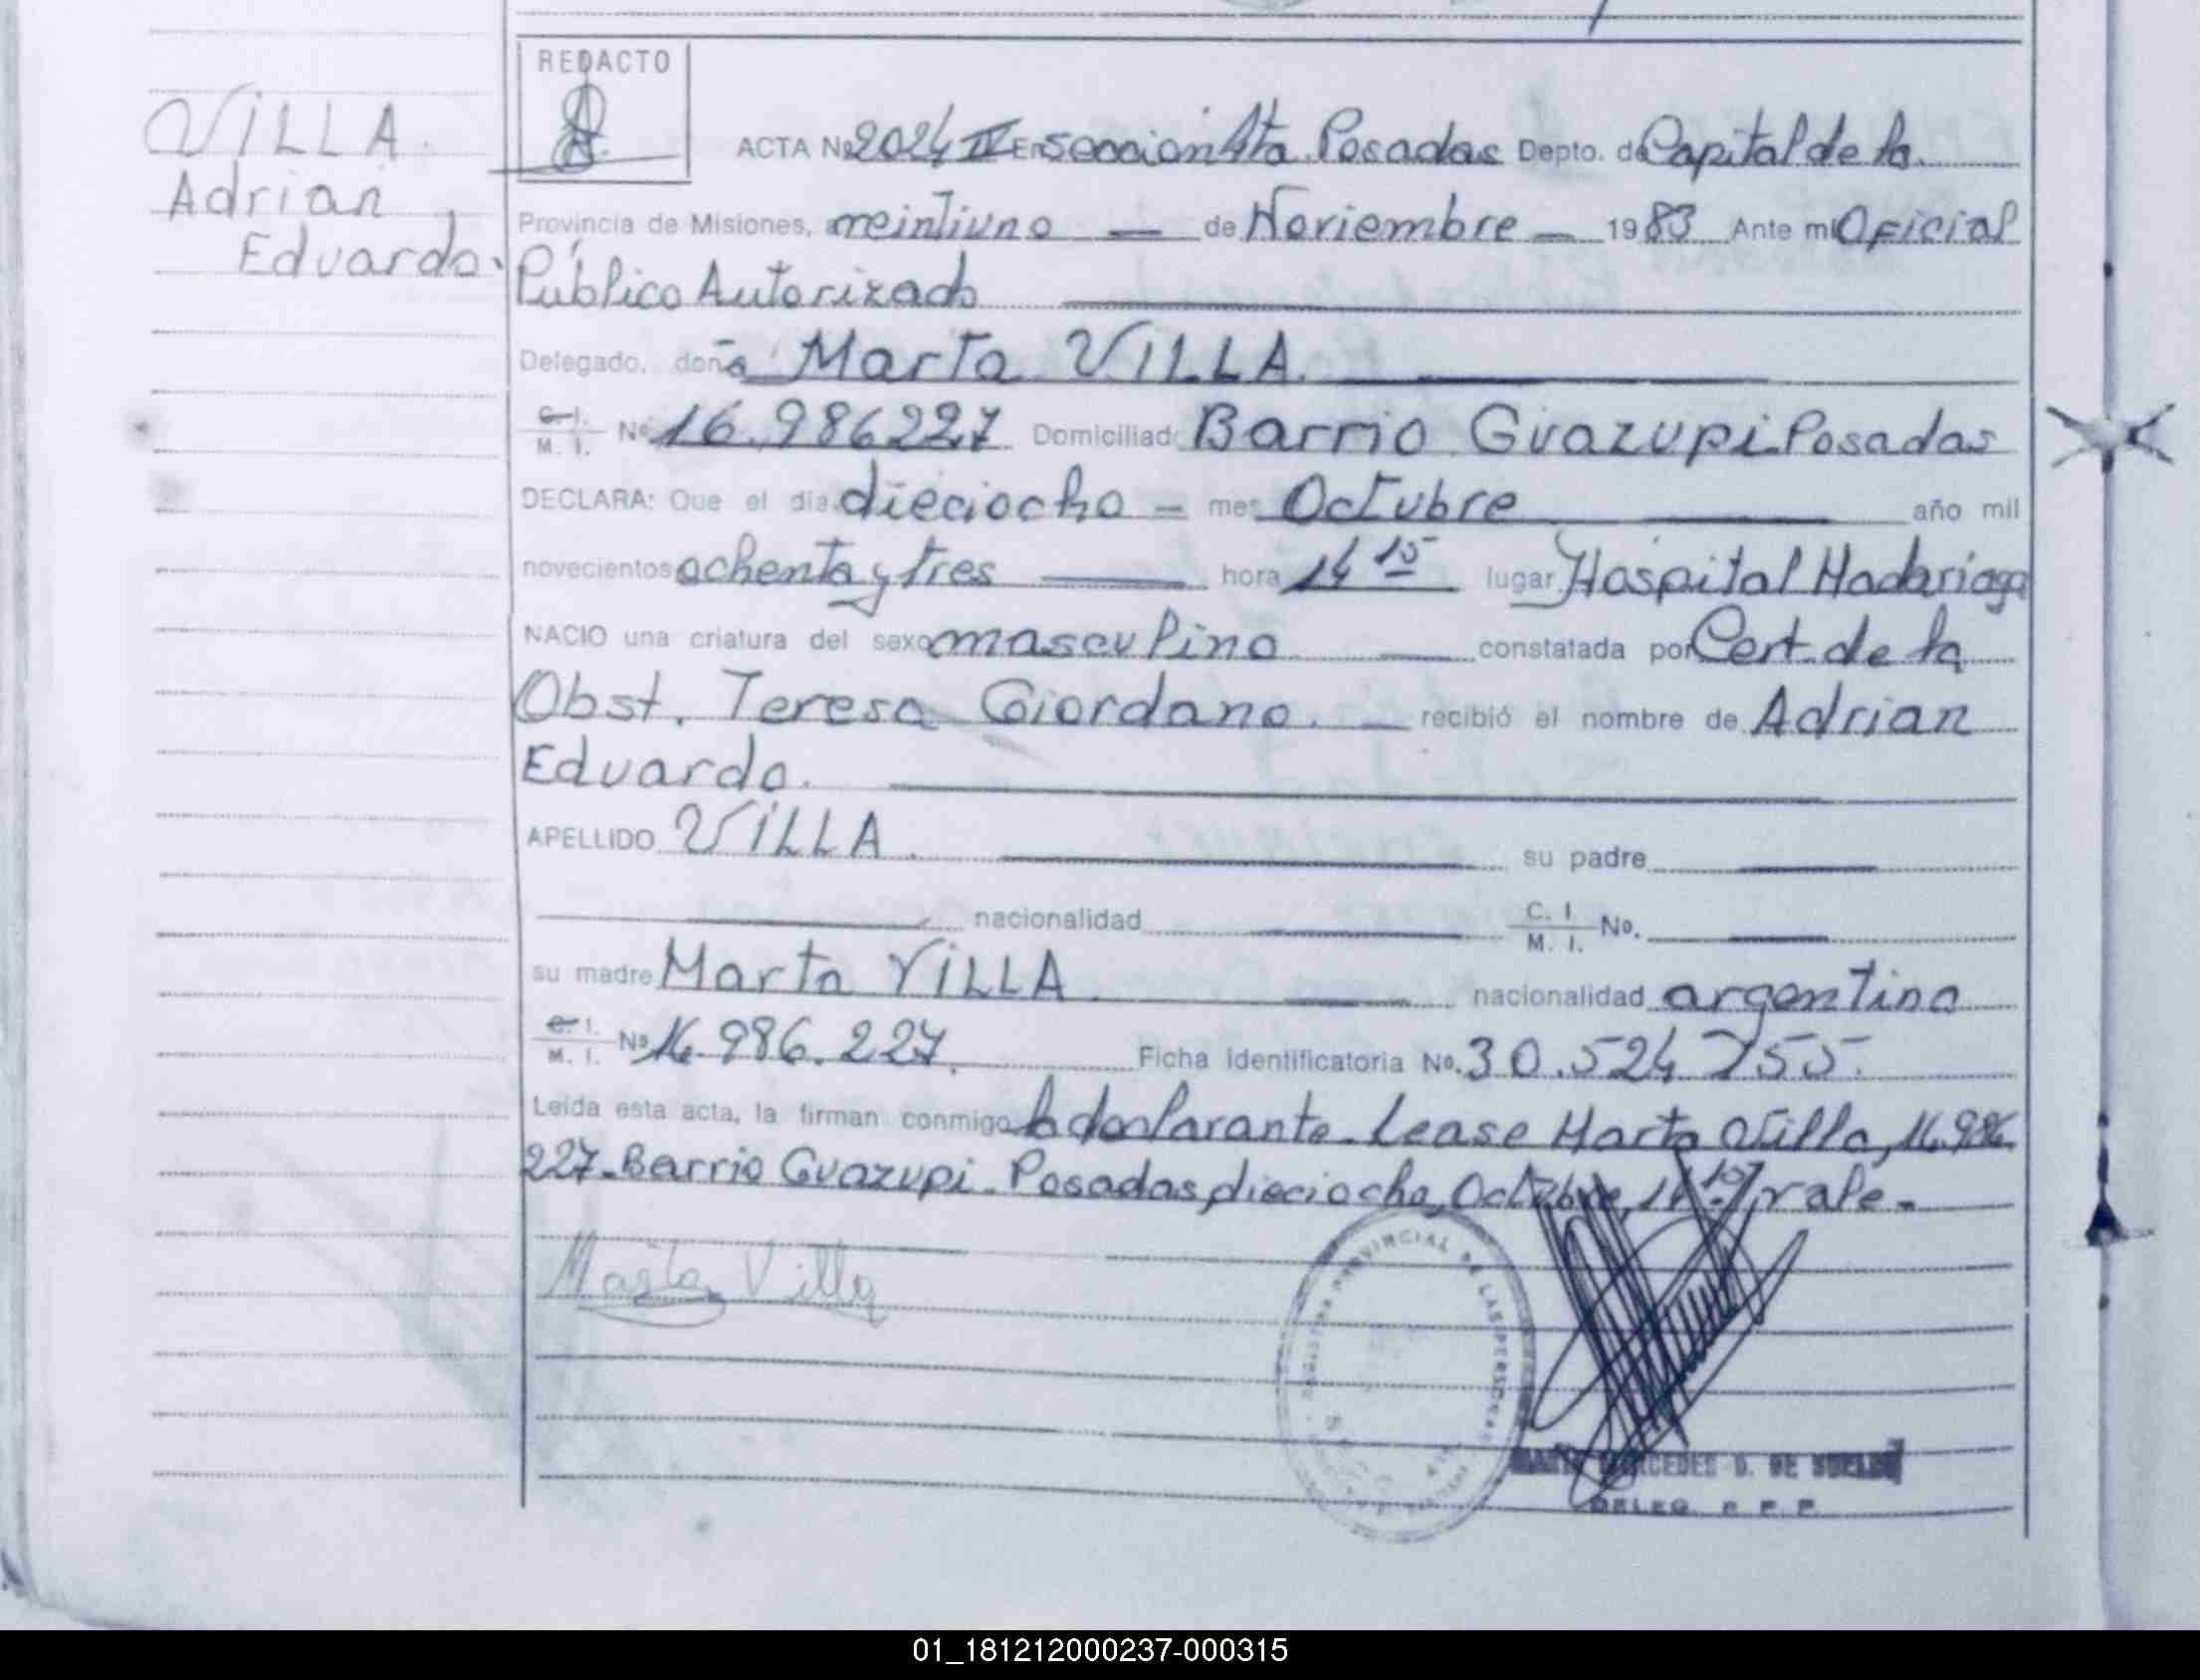 REDACTO
VILLA.
Adrian
Eduardo.
ACTA Nº 2024 IV En seccion 4ta. Posadas Depto. de Capital de la
Provincia de Misiones, a veintiuno — de Noviembre — 1983 Ante mi Oficial
Público Autorizado
Delegado, doña Marta VILLA.
C. I. M. I. Nº 16.986227 Domiciliad Barrio Guazupi Posadas
DECLARA: Que el día dieciocho — mes Octubre año mil
novecientos ochenta y tres hora 14 15 lugar Hospital Madariaga
NACIO una criatura del sexo masculino constatada por Cert. de la
Obst. Teresa Giordano. — recibió el nombre de Adrian
Eduardo.
APELLIDO VILLA. su padre
nacionalidad C. I M. I. Nº.
su madre Marta VILLA nacionalidad argentina
C. I. M. I. Nº 16.986.227. Ficha Identificatoria Nº. 30.524755.
Leída esta acta, la firman conmigo la declarante. Lease Marta Villa, 16.986.
227. Barrio Guazupi. Posadas, dieciocho, Octubre, 14 15, vale.-
Marta Villa
PROVINCIAL DE LAS PERSONAS
MERCEDES D. DE
DELEG. R. P. P.
01_181212000237-000315